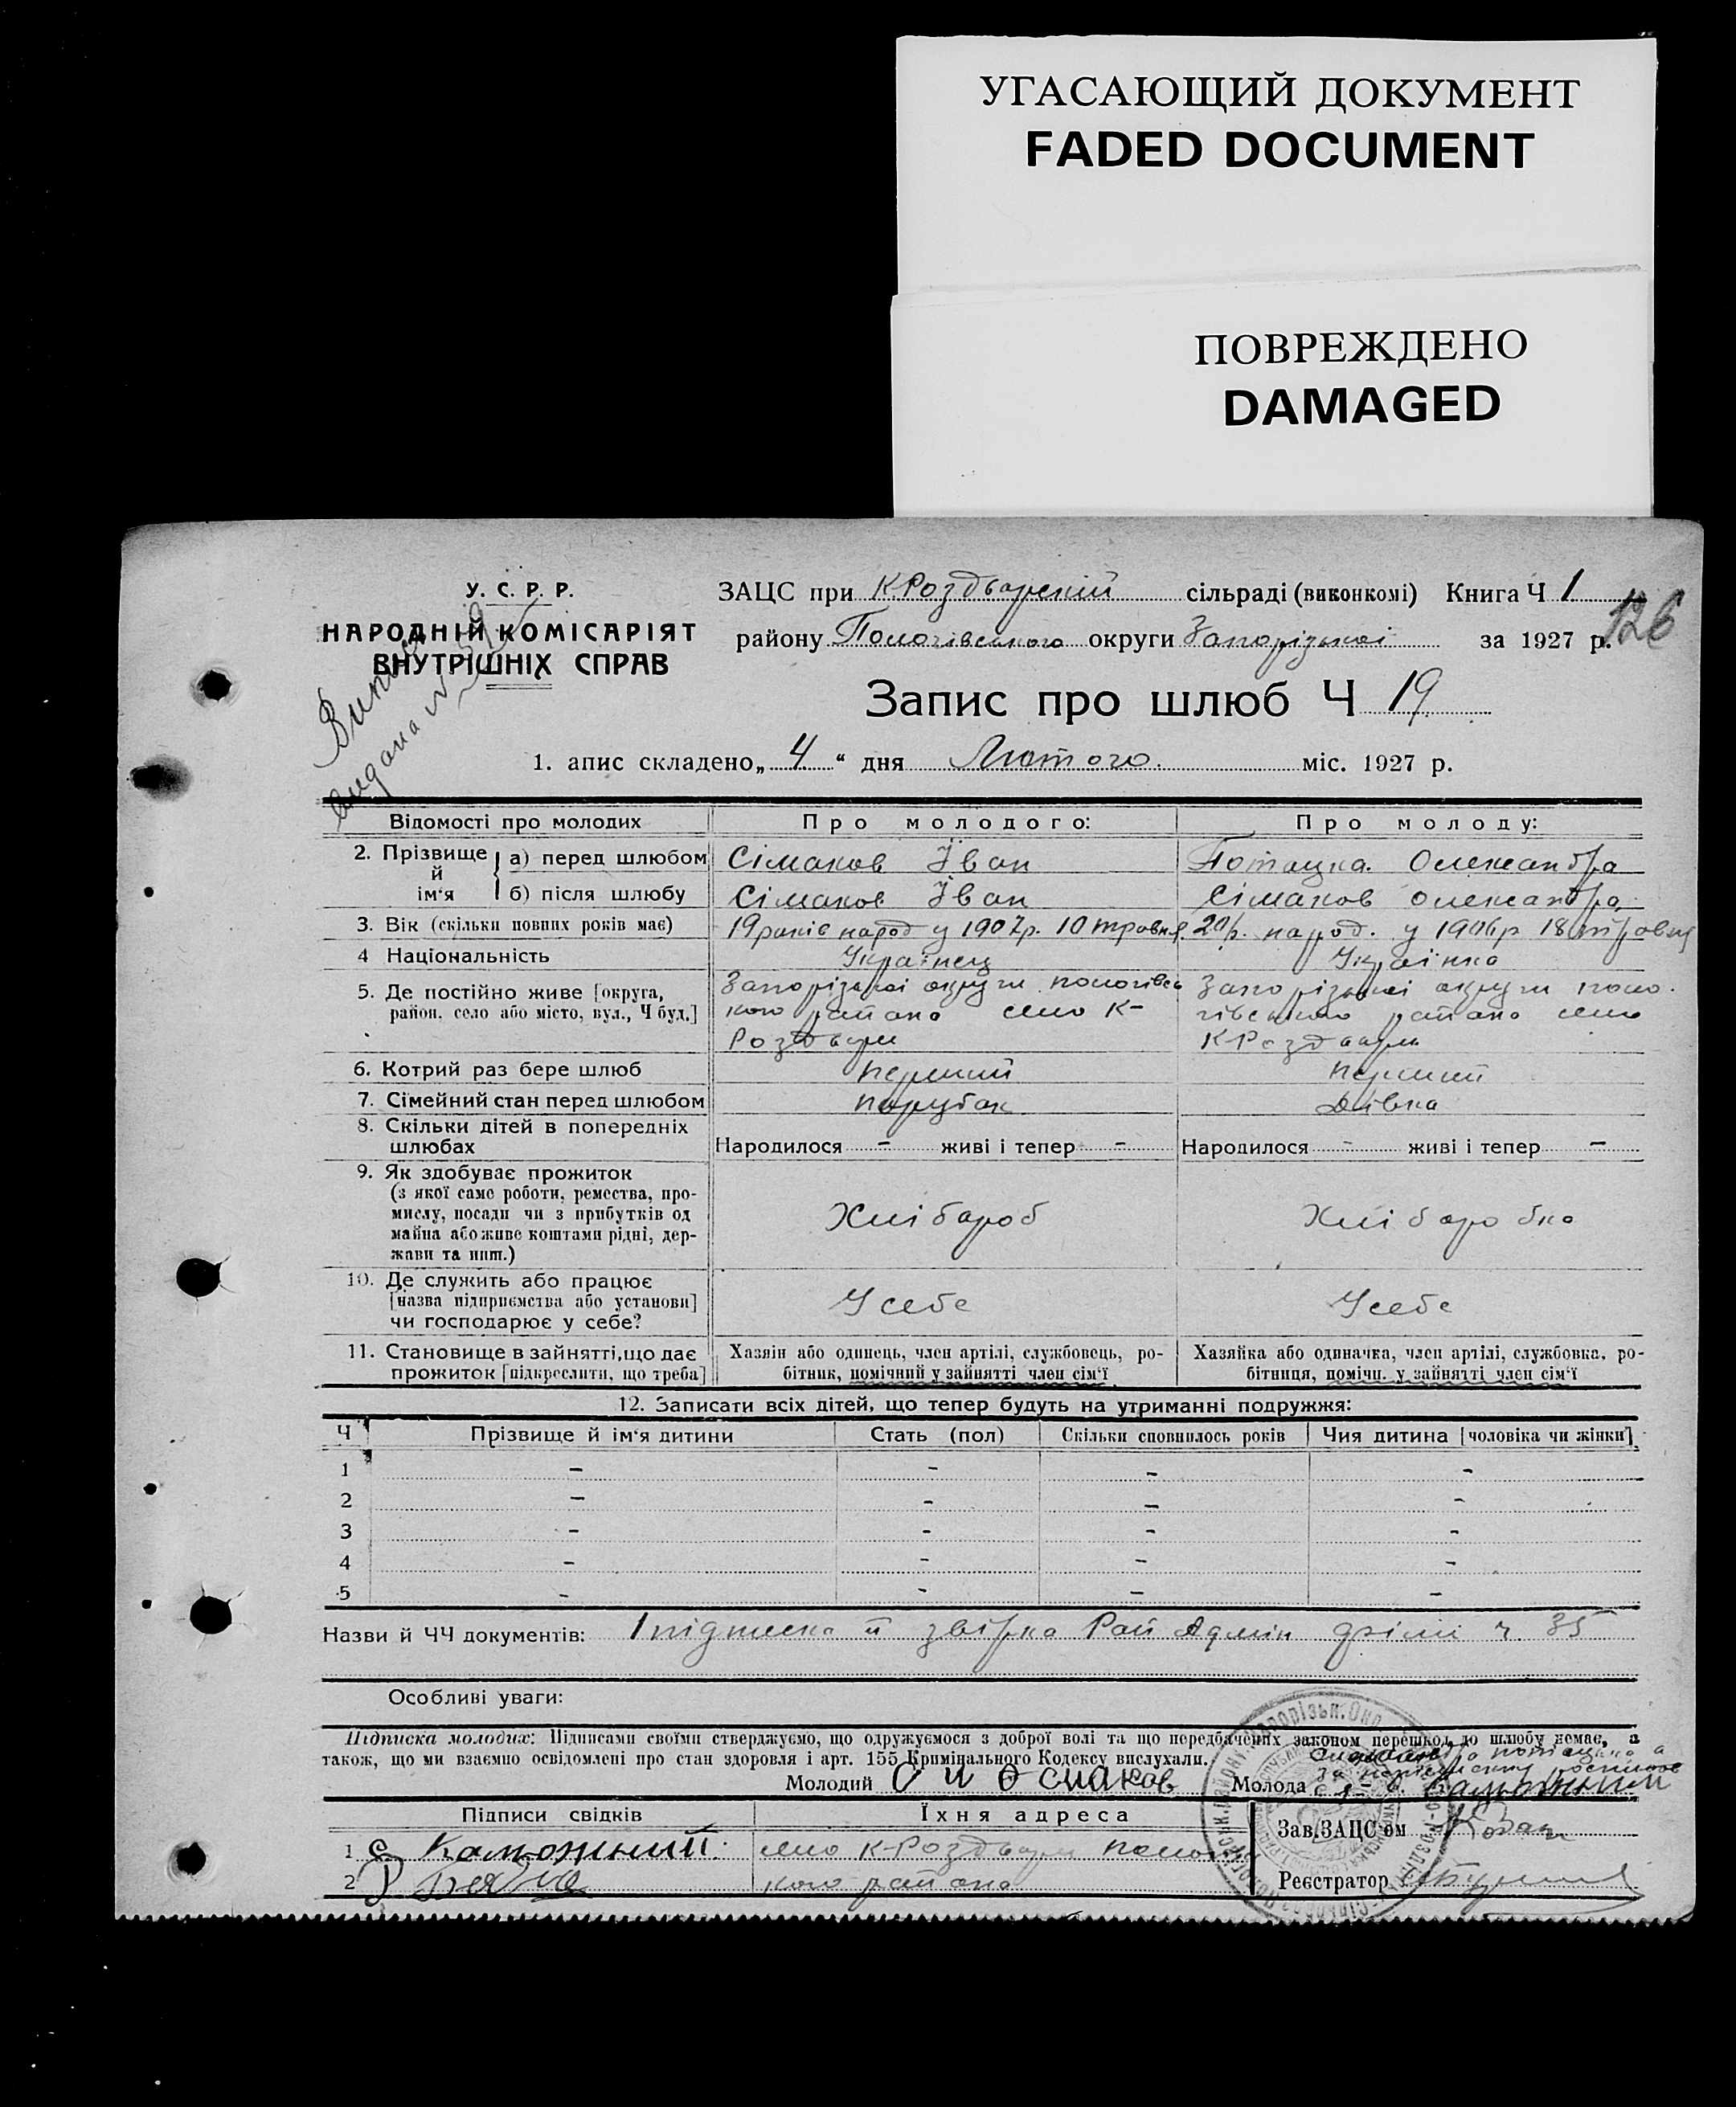 УГАСАЮЩИЙ ДОКУМЕНТ
FADED DOCUMENT
ПОВРЕЖДЕНО
DAMAGED
У. С. Р. Р.
НАРОДНІЙ КОМІСАРІЯТ
ВНУТРІШНІХ СПРАВ
ЗАЦС при К Роздварский сільраді (виконкомі) Книга Ч 1
126
району Пологівського округи Запорізької за 1927 р.
Запис про шлюб Ч 19
1. апис складено „ 4 “ дня Лютого міс. 1927 р.
Випис
видана №
Відомості про молодих Про молодого: Про молоду:
2. Прізвище й ім'я
а) перед шлюбом Сімаков Іван Потацка Олександра
б) після шлюбу Сімаков Іван Сімаков Олександра
3. Вік (скільки повних років має) 19 років народ у 1907р. 10 травня 20 р. народ. у 1906р 18 травня
4 Національність Українец Українка
5. Де постійно живе [округа, район, село або місто, вул., Ч буд.]
Запорізької округи пологівсь
кого района село К-
Роздвари
Запорізької округи поло-
гівського района село
К Роздвари
6. Котрий раз бере шлюб перший перший
7. Сімейний стан перед шлюбом парубок Дівка
8. Скільки дітей в попередніх шлюбах Народилося - живі і тепер - Народилося - живі і тепер -
9. Як здобуває прожиток
(з якої саме роботи, ремества, про-
мислу, посади чи з прибутків од
майна або живе коштами рідні, дер-
жави та инш.)
Хлібароб Хлібаробка
10. Де служить або працює
[назва підприємства або установи]
чи господарює у себе?
У себе У себе
11. Становище в зайнятті, що дає
прожиток [підкреслити, що треба]
Хазяїн або одинець, член артілі, службовець, ро-
бітник, помічний у зайнятті член сім'ї
Хазяйка або одиначка, член артілі, службовка, ро-
бітниця, помічн. у зайнятті член сім'ї
12. Записати всіх дітей, що тепер будуть на утриманні подружжя:
Ч Прізвище й ім'я дитини Стать (пол) Скільки сповнилось років Чия дитина [чоловіка чи жінки]
1 - - - -
2 - - - -
3 - - - -
4 - - - -
5 - - - -
Назви й ЧЧ документів: 1 підписка й звірка Рай Адмін ч. 35
Особливі уваги:
Підписка молодих: Підписами своїми стверджуємо, що одружуємося з доброї волі та що передбачених законом перешкод до шлюбу немає, а
також, що ми взаємно освідомлені про стан здоровля і арт. 155 Кримінального Кодексу вислухали.
Молодий Молода
Підписи свідків Їхня адреса
Зав. ЗАЦС'ом
1 Є Каможный село К-Роздвари
2 кого района
Реєстратор